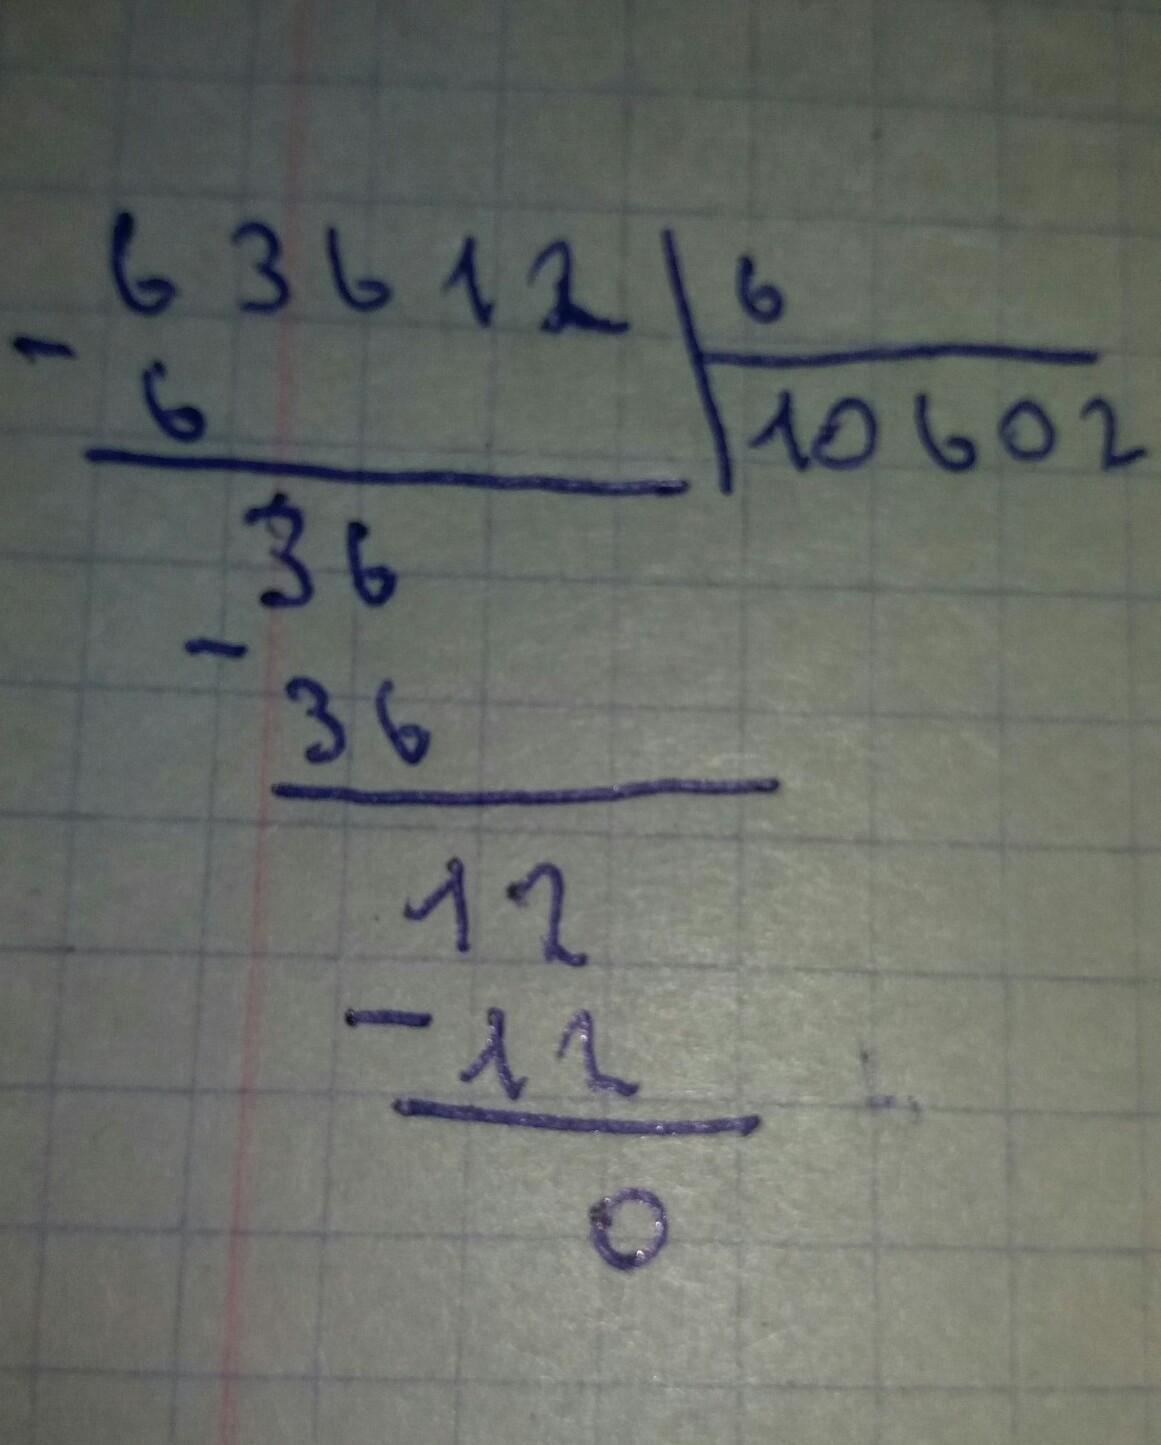 63612 6
- 6 10602
36
- 36
12
- 12
0